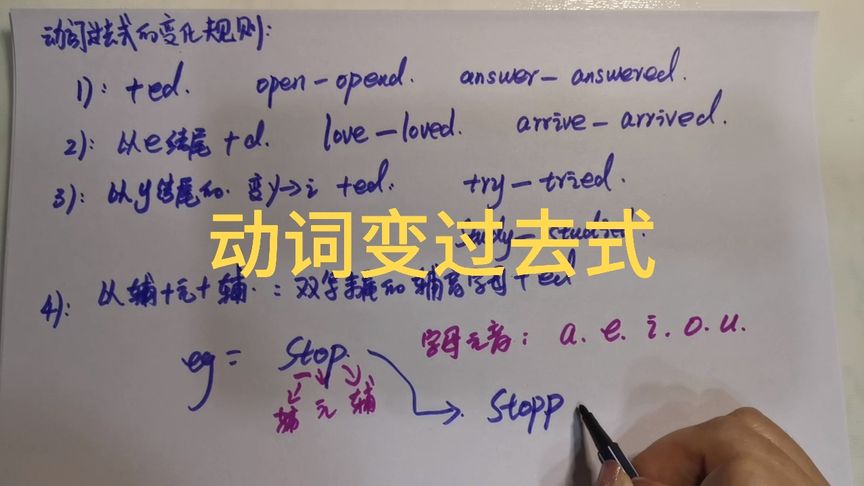 动词过去式的变化规则:
1): +ed. open - opend. answer - answered.
2): 以e结尾 +d. love - loved. arrive - arrived.
3): 以y结尾的. 变y→i +ed. try - tried.
动词变过去式
4): 以辅+元+辅. : 双写末尾的辅音字母+ed
字母元音: a. e. i. o. u.
eg = stop.
辅 元 辅
stopp